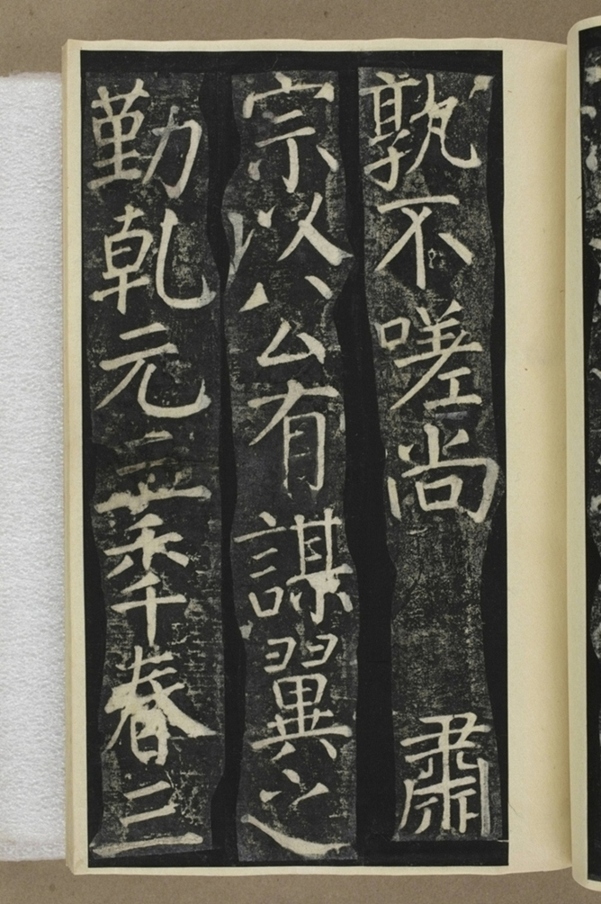 孰不嗟尚　肅
宗以公有謀翼之
勤乾元二秊春三